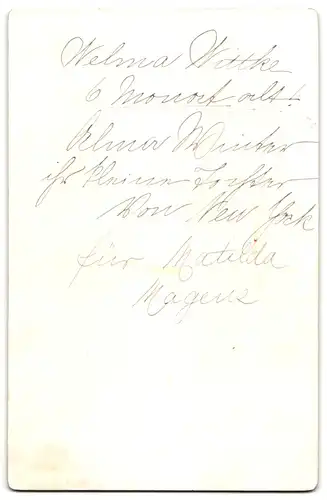 Welma Wittke
6 Monat alt!
Alma Winter
ihr kleine Tochter
von New York
für Matilda
Magens